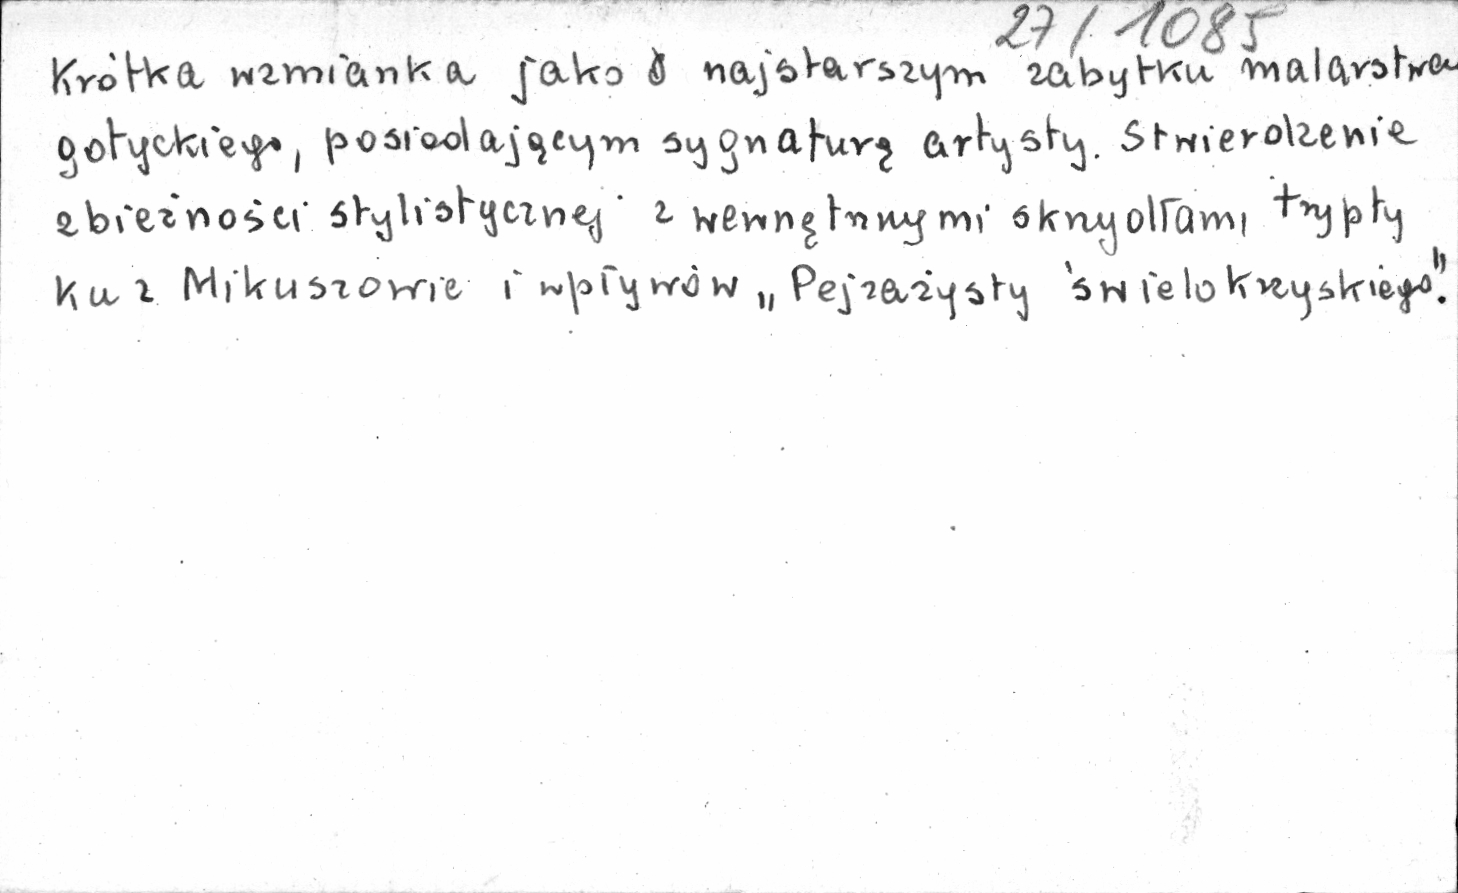 27/1085
Krótka wzmianka jako o najstarszym zabytku malarstwa
gotyckiego, posiadającym sygnaturę artysty. Stwierdzenie
zbieżności stylistycznej z wewnętrznymi skrzydłami trypty
ku z Mikuszowic i wpływów „Pejzażysty świętokrzyskiego".